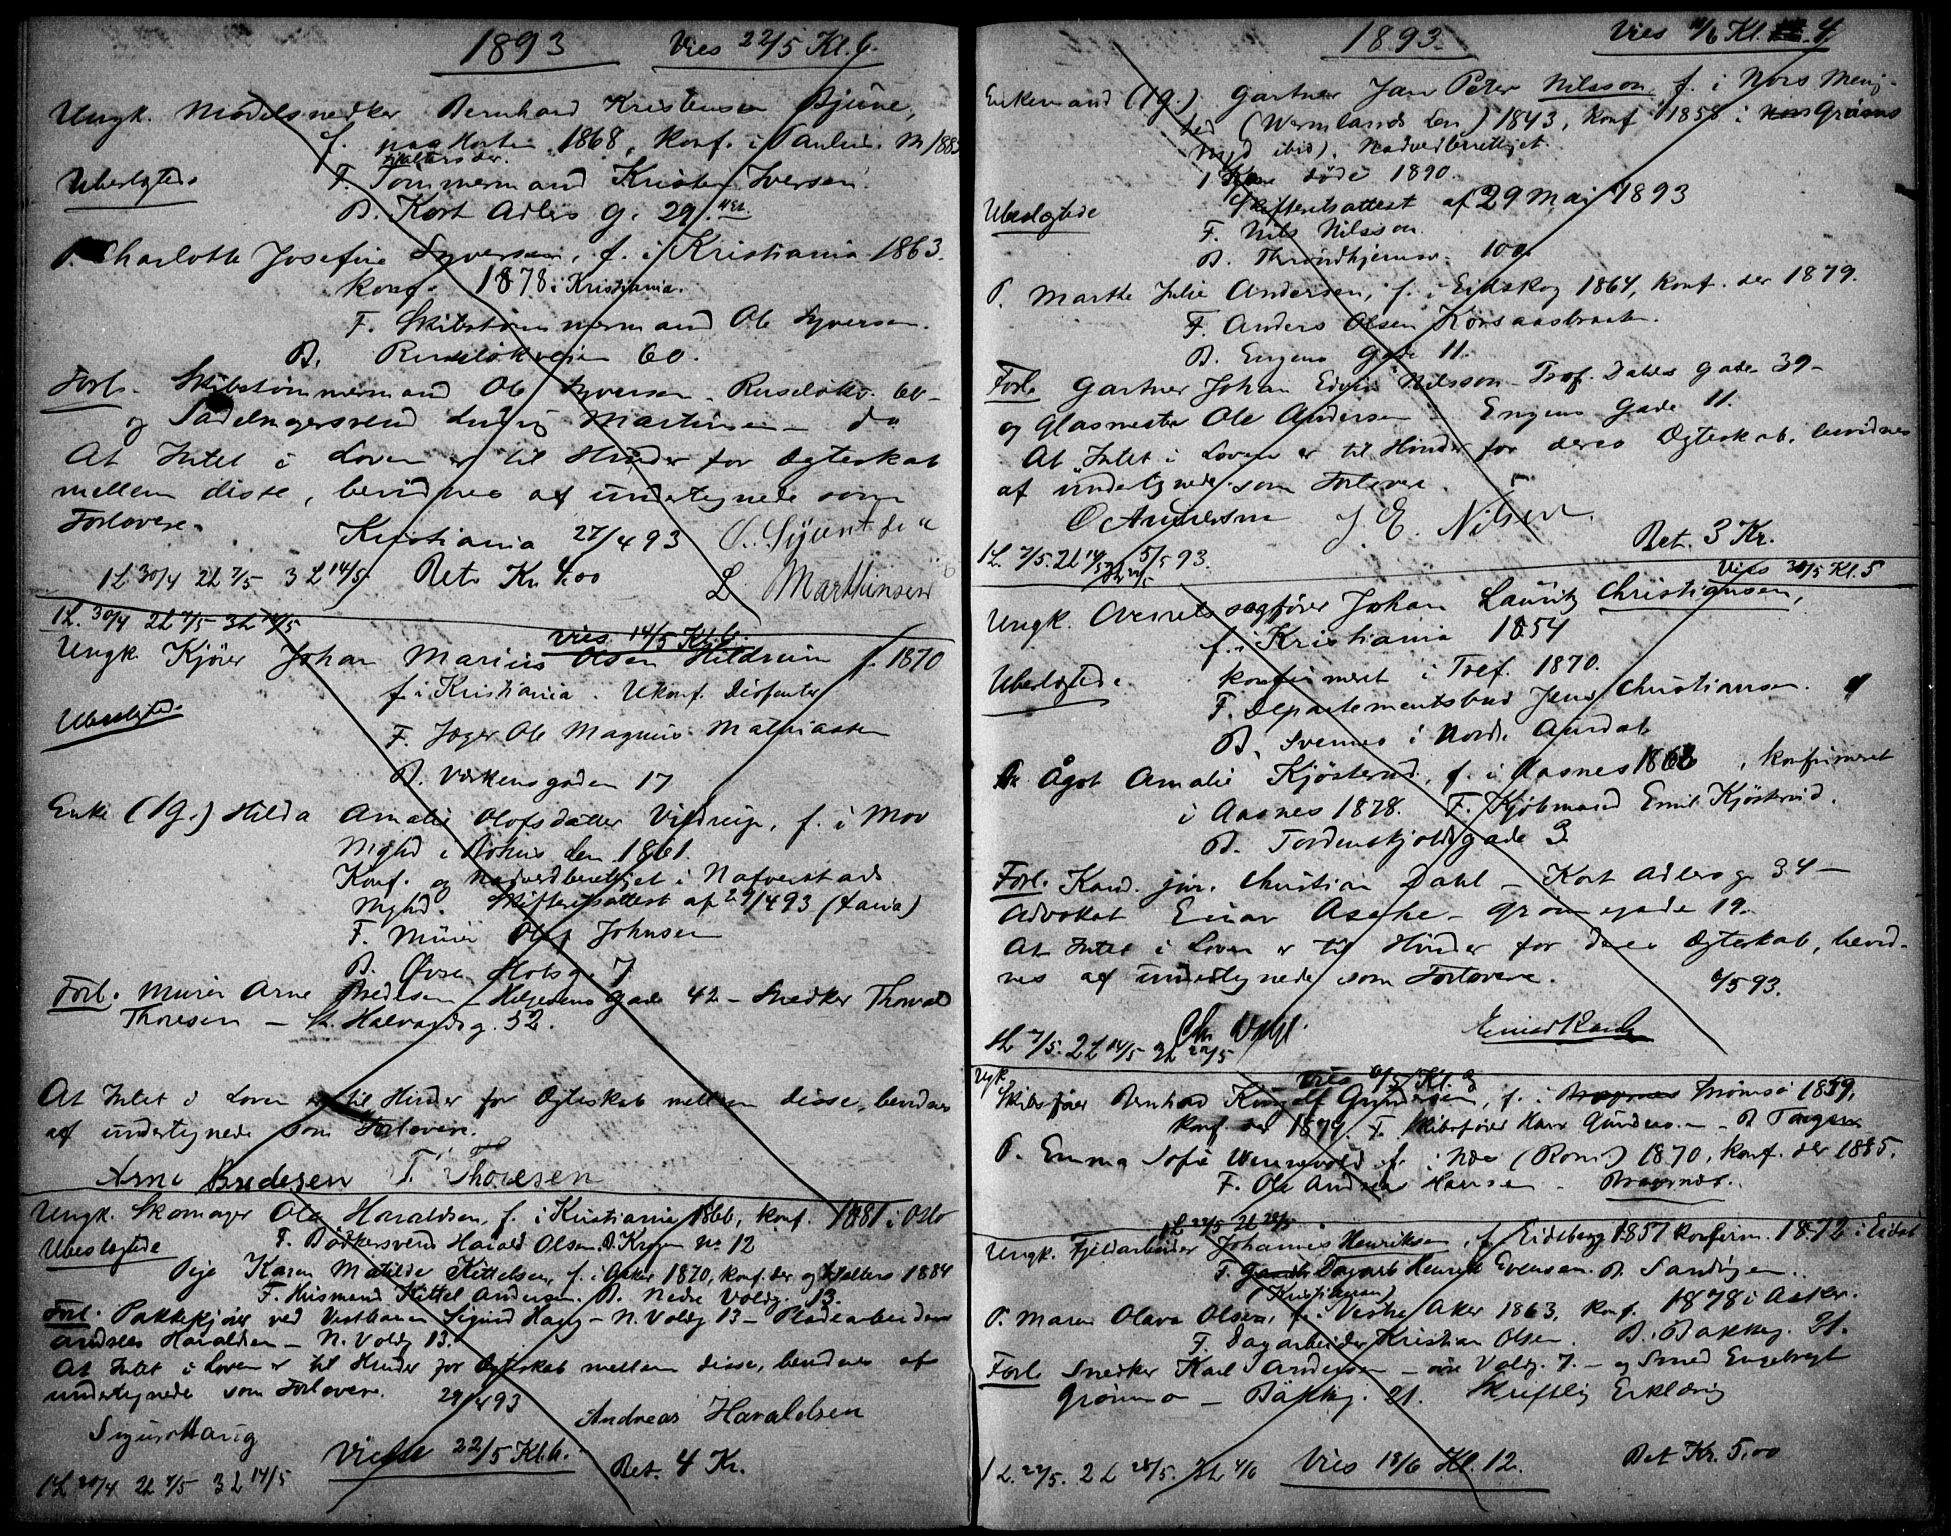 1893 Vies 22/5 Kl. 6.
Ungk. Modelsnedker Bernhard Kristensen Bjune,
f. paa Horten 1868, konf. i Paulus. M 1883
Ubeslægtede
F. Tømmermand Kristen Iversen.
B. Kort Adlers G. 29.
P. Charlotte Josefine Syversen, f. i Kristiania 1863.
konf. 1878 i Kristiania.
F. Skibstømmermand Ole Syversen.
B. Ruseløkveien 60.
Forl. Skibstømmermand Ole Syversen - Ruseløkv. 60 -
og Sadelmagersvend Ludvig Martinsen - do
At Intet i Loven er til Hinder for Ægteskab
mellem disse, bevidnes af undertegnede som
Forlovere.
Kristiania 27/4 93
L Marthinsen
1 L 30/4 2 L 7/5 3 L 14/5 Bet. Kr. 4.00
1 L. 30/4 2 L 7/5 3 L 14/5
Vies 14/5 Kl. 6.
Ungk. Kjører Johan Marius Olsen Hildrum f. 1870
f. i Kristiania. Ukonf. Dissenter
Ubeslægtede
F. Jæger Ole Magnus Mathiassen
B. Værkensgaden 17
Enke (1 g.) Hilda Amalie Olofsdatter f. i Mov
Mghd i Bohus len 1861.
Konf. og Nadverdberettiget i Nafverstads
Mghd. Skifteretsattest af 29/4 93
F. Murer Olof Johnsen
B. Øvre 7
Forl. Murer Arne Bredesen - Helgesens Gade 42 - Snedker Thorvald
Thoresen - St. Halvardsg. 52.
At Intet i Loven er til Hinder for Ægteskab mellem disse, bevidnes
af undertegnede som Forlovere.
Arne Bredesen T. Thoresen
Ungk. Skomager Ole Haraldsen, f. i Kristiania 1866, konf. 1881 i Oslo
Ubeslægtede
F. Bødkersvend Harald Olsen. B. Krogen No 12
Pige Karen Matilde Kittelsen, f. i Asker 1870, konf. der 1884
F. Husmand Kittel Andersen. B. Nedre Voldg. 13.
Forl. Pakkekjører ved Vestbanen Sigurd Haug - N. Voldg 13 - Pladearbeider
Andreas Haraldsen - N. Voldg 13.
At Intet i Loven er til Hinder for Ægteskab mellem disse, bevidnes af
undertegnede som Forlovere.
29/4 93
Andreas Haraldsen
Sigurd Haug
Vies 22/5 Kl. 6.
Bet. 4 Kr.
1 L 30/4 2 L 7/5 3 L 14/5
1893. Vies 11/6 Kl. 4
Enkemand (1 g.) Gartner Jan Peter Nilsson f. i Nors Menig-
hed (Wermlands len) 1843, konf 1858 i
ibid). Nadverdberettiget.
døde 1890.
Skifteretsattest af 29 Mai 1893
Ubeslægtede
F. Nils Nilsson.
B. Throndhjemsv. 100.
P. Marthe Julie Andersen, f. i Eidskog 1864, konf. der 1879.
F. Anders Olsen
B. Engens Gade 11.
Forl. Gartner Johan Edvin Nilsson - Prof. Dahls Gade 39 -
og Glasmester Ole Andersen - Engens Gade 11.
At Intet i Loven er til Hinder for deres Ægteskab, bevidnes
af undertegnede som Forlovere.
O Andersen J. E. Nilsen.
Bet. 3 Kr.
1 L. 7/5. 2 L 14/5 5/5 93.
Vies 30/5 Kl. 5
Ungk. Overretssagfører Johan Lauritz Christiansen,
f. i Kristiania 1854
Ubeslægtede
konfirmeret i Tref. 1870.
F. Departementsbud Jens Christiansen.
B. Svennes i Nordr. Aurdal.
Ågot Amalie Kjøsterud, f. i Aasnes 1863, konfirmeret
i Aasnes 1878. F. Kjøbmand Emil Kjøsterud.
B. Tordenskjoldsgade 3
Forl. Kand. jur. Christian Dahl - Kort Adlers g 34 -
Advokat Einar - Grønnegade 19.
At Intet i Loven er til Hinder for deres Ægteskab, bevid-
nes af undertegnede som Forlovere.
6/5 93.
Chr Dahl.
1 L 7/5. 2 L 14/5 3 L 22/5
Ungk.
Vies Kl. 3
Skibsfører Bernhard Gundersen, f. i Tromsø 1859,
konf. der 1874. F. Skibsfører Hans Gundersen - B Tangen
P. Emma Sofie f. i 1870, konf. der 1885.
F. Ole Andreas Hansen - Bragernæs.
1 L 22/5 2 L 28/5
Ungk. Fjeldarbeider Johannes Henriksen, f. Eidsberg 1857 konfirm. 1872 i Eidsb
F. Dagarb Henrik Evensen. B. Sandvigen.
(Kristiansen)
P. Maren Olava Olsen, f. i Vestre Aker 1863, konf. 1878 i Asker.
F. Dagarbeider Kristian Olsen. B. Bakkeg. 21.
Forl Snedker Karl Andersen - Voldg. 7. - og Smed Engebregt
Grønmo - Bakkeg. 21. Skriftlig Erklæring
1 L. 22/5. 2 L 28/5. 3 L 4/6 Vies 18/6 Kl. 12. Bet Kr. 5.00